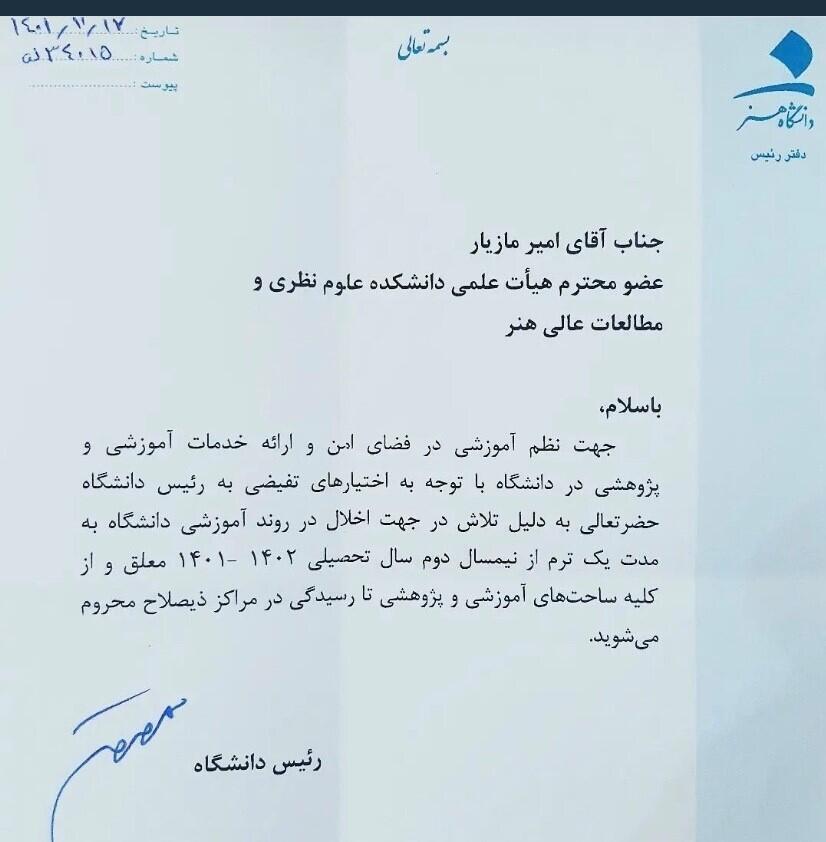 بسمه تعالی
تاریخ: ۱۴۰۱/۱۱/۱۷
شماره: ۳۴۰۱۵
پیوست:
دانشگاه هنر
دفتر رئیس
جناب آقای امیر مازیار
عضو محترم هیأت علمی دانشکده علوم نظری و
مطالعات عالی هنر
باسلام،
جهت نظم آموزشی در فضای امن و ارائه خدمات آموزشی و
پژوهشی در دانشگاه با توجه به اختیارهای تفیضی به رئیس دانشگاه
حضرتعالی به دلیل تلاش در جهت اخلال در روند آموزشی دانشگاه به
مدت یک ترم از نیمسال دوم سال تحصیلی ۱۴۰۲ -۱۴۰۱ معلق و از
کلیه ساحت‌های آموزشی و پژوهشی تا رسیدگی در مراکز ذیصلاح محروم
می‌شوید.
رئیس دانشگاه